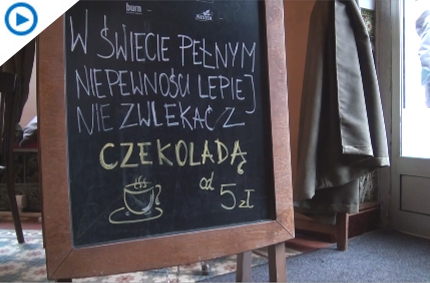 burn
W ŚWIECIE PEŁNYM
NIEPEWNOŚCI LEPIEJ
NIE ZWLEKAĆ Z
CZEKOLADĄ
od 5 zł